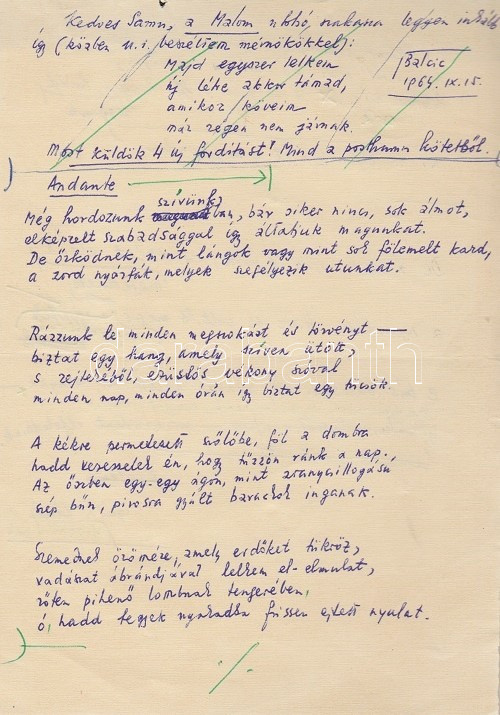 Kedves Samu, a Malom utolsó szakasza legyen inkább
így (közben u.i. beszéltem mérnökökkel):
Majd egyszer lelkem
új léhe akkor támad,
amikor köveim
már régen nem járnak.
Balcic
1964. IX. 15.
Most küldök 4 új fordítást! Mind a posthumus kötetből.
Andante
szívünk
Még hordozunk ban, bár siker nincs, sok álmot,
elképzelt szabadsággal így áltatjuk magunkat.
De őrködnek, mint lángok vagy mint sok fölemelt kard,
a zord nyárfák, melyek szegélyezik utunkat.
Rázzunk le minden megszokást és törvényt —
biztat egy hang, amely szíven ütött,
s rejtekéből, ezüstös vékony síppal
minden nap, minden órán így biztat egy tücsök.
A kékre permetezett szőlőbe, föl a dombra
hadd vezesselek én, hogy tűzzön ránk a nap,
Az őszben egy-egy ágon, mint aranycsillogású
szép bűn, pirosra gyúlt barackok inganak.
Szemednek örömére, amely erdőket tükröz,
vadászat ábrándjával lelkem el-elmulat,
rőten pihenő lombnak tengerében,
ó, hadd tegyek nyakadba frissen ejtett nyulat.
darabanth